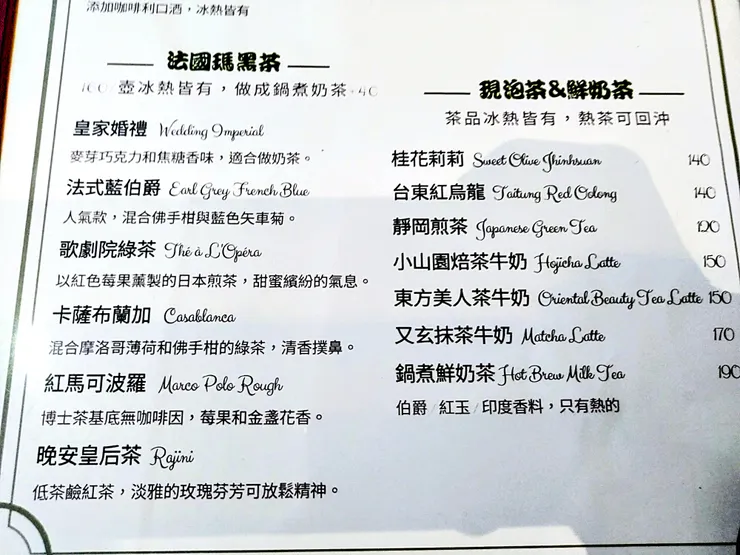 添加咖啡利口酒，冰熱皆有
法國瑪黑茶
160/壺冰熱皆有，做成鍋煮奶茶+40
皇家婚禮 Wedding Imperial
麥芽巧克力和焦糖香味，適合做奶茶。
法式藍伯爵 Earl Grey French Blue
人氣款，混合佛手柑與藍色矢車菊。
歌劇院綠茶 Thé à L'Opéra
以紅色莓果薰製的日本煎茶，甜蜜繽紛的氣息。
卡薩布蘭加 Casablanca
混合摩洛哥薄荷和佛手柑的綠茶，清香撲鼻。
紅馬可波羅 Marco Polo Rough
博士茶基底無咖啡因，莓果和金盞花香。
晚安皇后茶 Rajini
低茶鹼紅茶，淡雅的玫瑰芬芳可放鬆精神。
現泡茶&鮮奶茶
茶品冰熱皆有，熱茶可回沖
桂花莉莉 Sweet Olive Jhinhsuan 140
台東紅烏龍 Taitung Red Oolong 140
靜岡煎茶 Japanese Green Tea 120
小山園焙茶牛奶 Hojicha Latte 150
東方美人茶牛奶 Oriental Beauty Tea Latte 150
又玄抹茶牛奶 Matcha Latte 170
鍋煮鮮奶茶 Hot Brew Milk Tea 190
伯爵/紅玉/印度香料，只有熱的